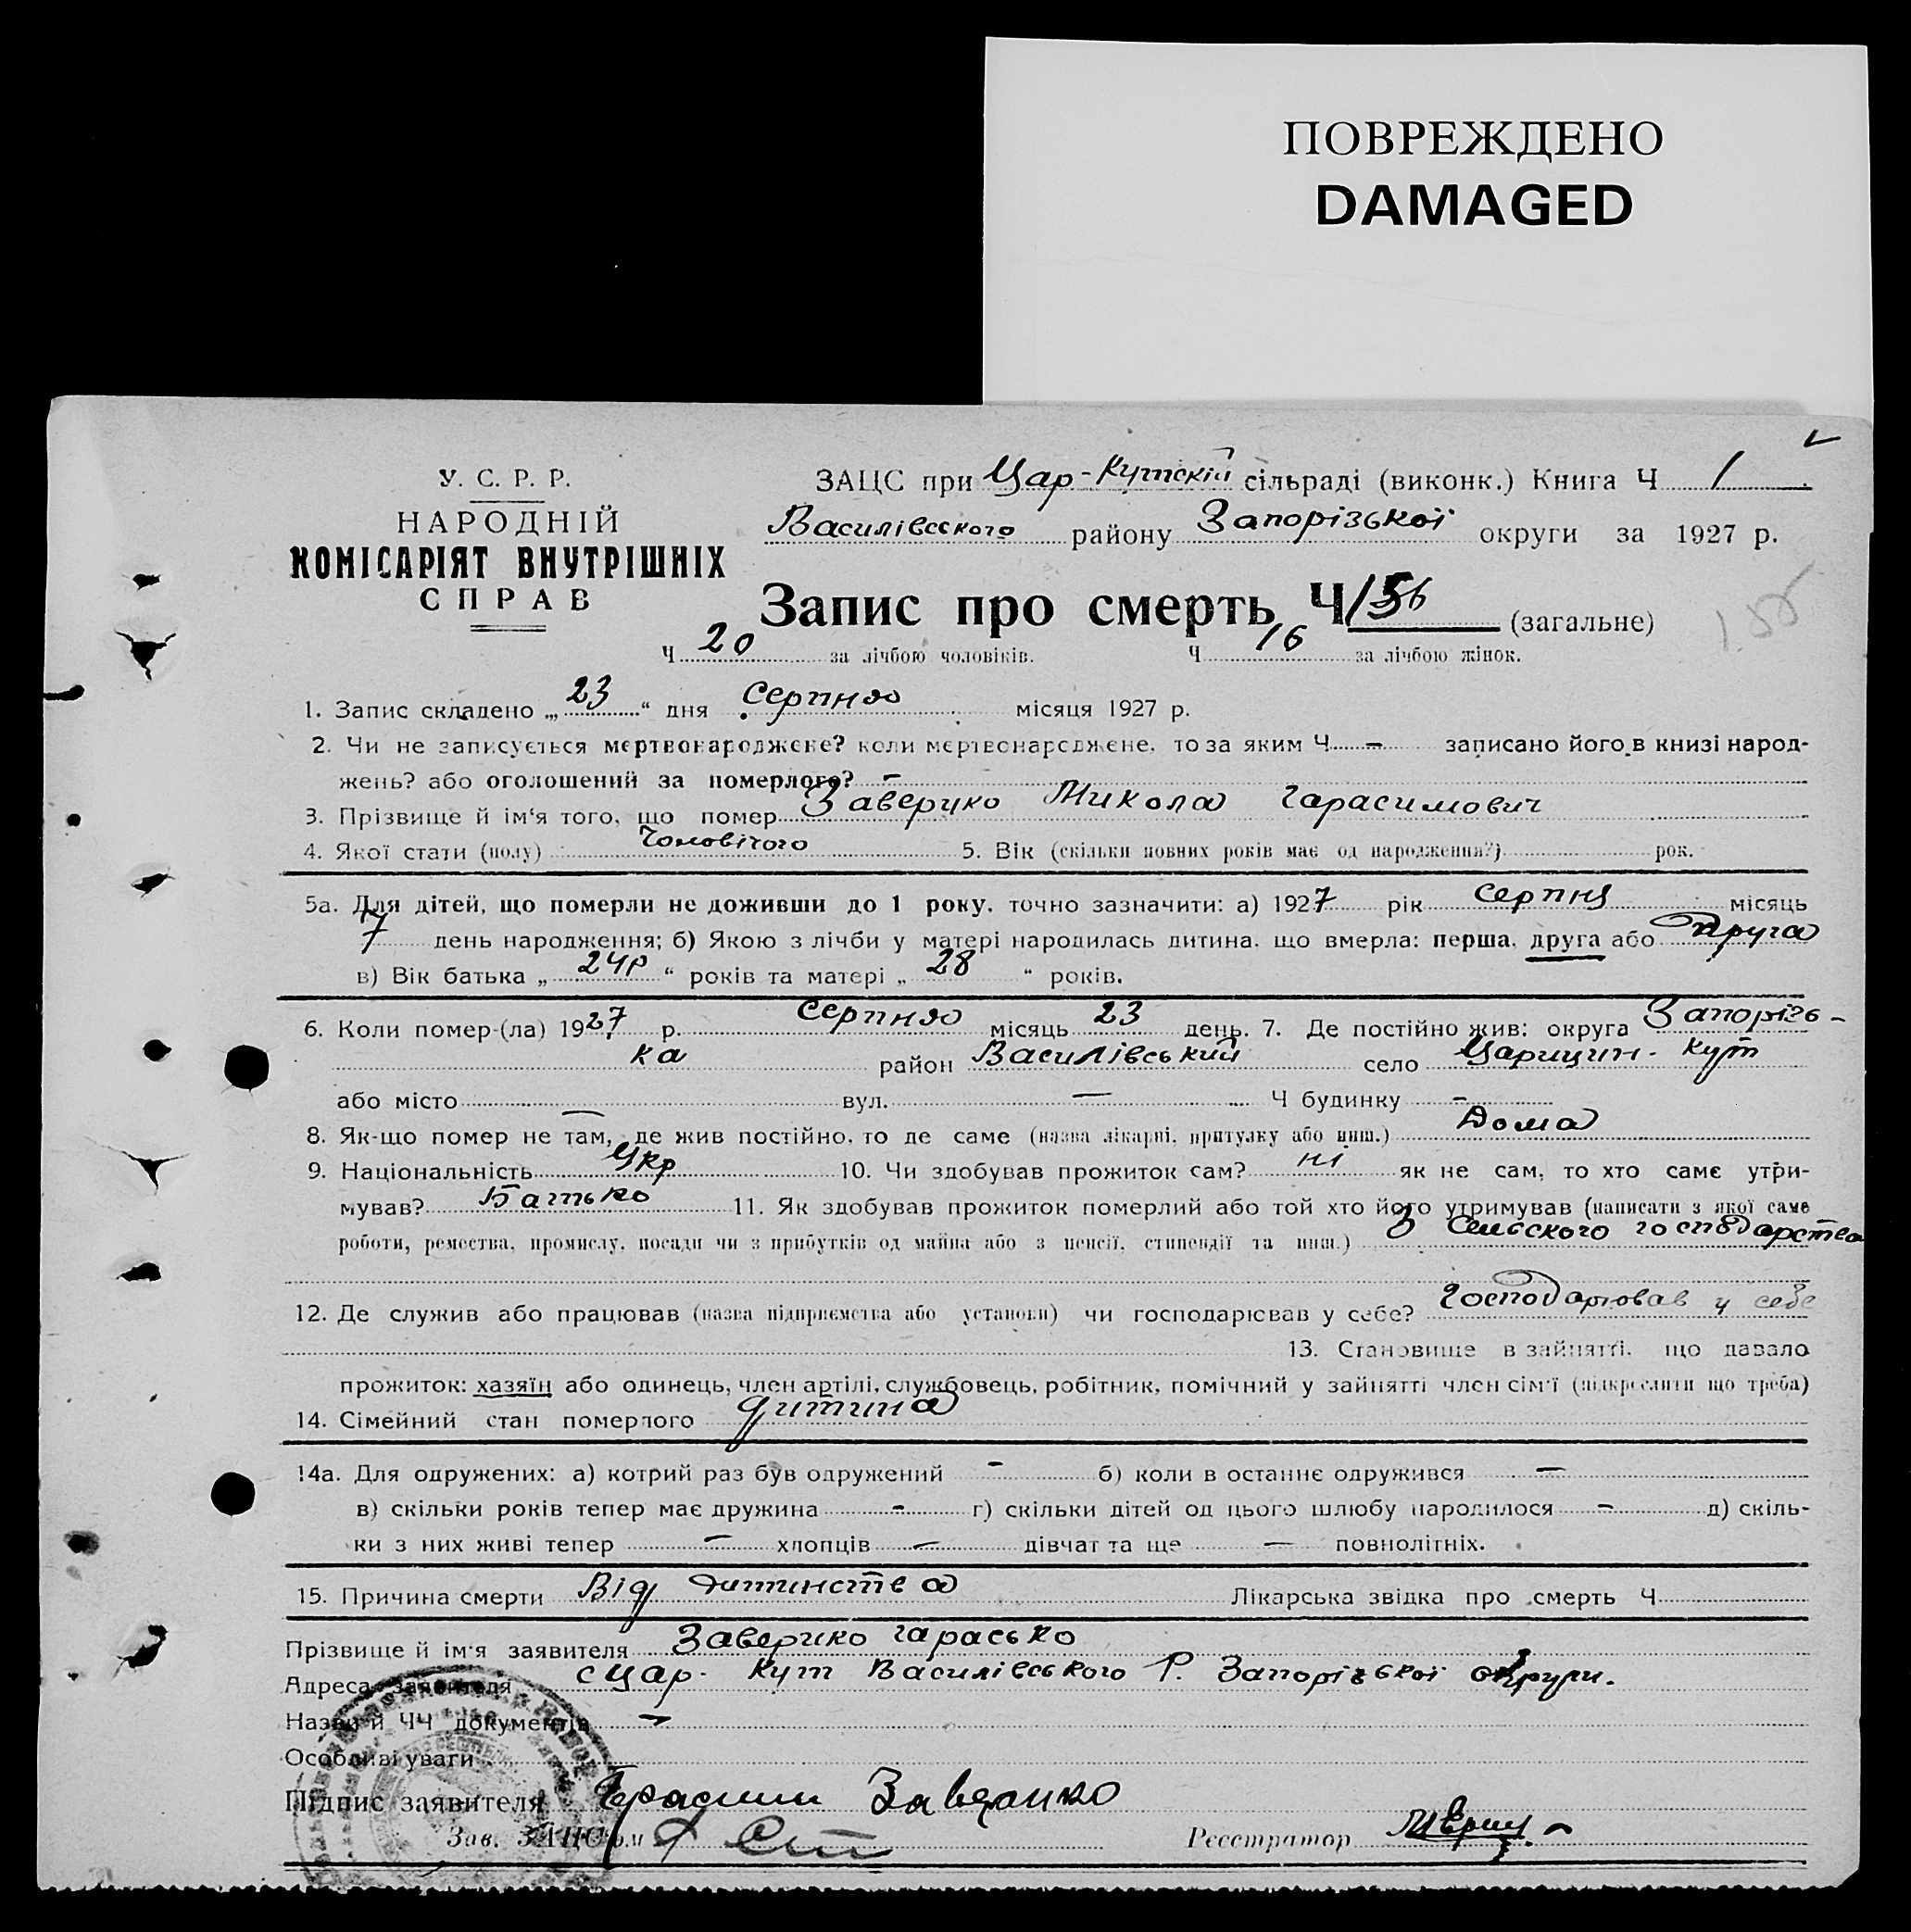 ПОВРЕЖДЕНО
DAMAGED
У. С. Р. Р.
НАРОДНІЙ
КОМІСАРІЯТ ВНУТРІШНІХ
СПРАВ
ЗАЦС при Цар-Кутскій сільраді (виконк.) Книга Ч 1
Василівського району Запорізької округи за 1927 р.
Запис про смерть Ч 136 (загальне)
Ч 20 за лічбою чоловіків. Ч 16 за лічбою жінок.
1. Запис складено „ 23 “ дня Серпня місяця 1927 р.
2. Чи не записується мертвонароджене? коли мертвонароджене, то за яким Ч — записано його в книзі народ-
жень? або оголошений за померлого? —
3. Прізвище й ім‘я того, що помер Заверуко Микола Гарасимович
4. Якої стати (полу) Чоловічого 5. Вік (скільки повних років має од народження?) рок.
5а. Для дітей, що померли не доживши до 1 року, точно зазначити: а) 1927 рік Серпня місяць
7 день народження; б) Якою з лічби у матері народилась дитина, що вмерла: перша, друга або друга
в) Вік батька „ 24р “ років та матері „ 28 “ років.
6. Коли помер-(ла) 1927 р. Серпня місяць 23 день. 7. Де постійно жив: округа Запорізь-
ка район Василівський село Царицин-Кут
або місто — вул. — Ч будинку —
8. Як-що помер не там, де жив постійно, то де саме (назва лікарні, притулку або инш.) Дома
9. Національність Укр 10. Чи здобував прожиток сам? ні як не сам, то хто саме утри-
мував? Батько 11. Як здобував прожиток померлий або той хто його утримував (написати з якої саме
роботи, ремества, промислу, посади чи з прибутків од майна або з пенсії, стипендії та инш.) З Сельского господарства
12. Де служив або працював (назва підприємства або установи) чи господарював у себе? Господарював у себе
13. Становище в зайнятті, що давало
прожиток: хазяїн або одинець, член артілі, службовець, робітник, помічний у зайнятті член сім‘ї (підкреслити що треба)
14. Сімейний стан померлого дитина
14а. Для одружених: а) котрий раз був одружений - б) коли в останнє одружився —
в) скільки років тепер має дружина - г) скільки дітей од цього шлюбу народилося - д) скіль-
ки з них живі тепер — хлопців — дівчат та ще — повнолітніх.
15. Причина смерти Від дитинства Лікарська звідка про смерть Ч
Прізвище й ім‘я заявителя Заверуко Гарасько
Адреса заявителя с Цар-Кут Василівського Р. Запорізької округи.
Назви й ЧЧ документів —
Особливі уваги
Підпис заявителя
Зав. ЗАЦС‘ом
Реєстратор